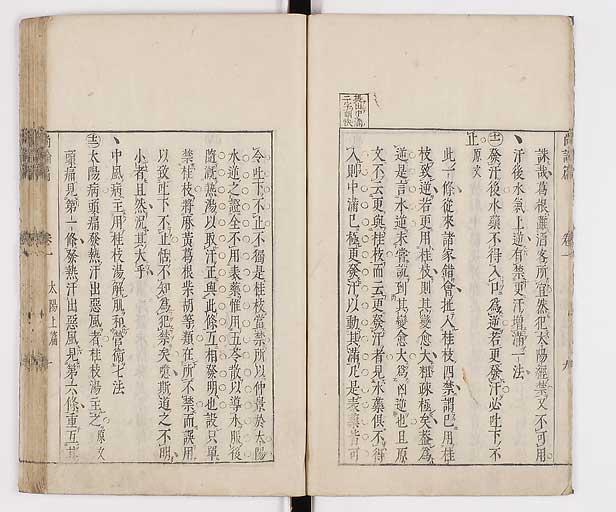 誅哉葛根雖酒客所宜然犯太陽經禁又不可用
汗後水氣上逆有禁更汗增滿一法
發汗後水藥不得入口為逆若更發汗必吐下不
正原文
此一條從來諸家錯會扯入桂枝四禁謂已用桂
枝致逆若更用桂枝則其變愈大粗疎極矣蓋為
逆是言水逆未嘗說到其變愈大為凶逆也且原
文不云更與桂枝而云更發汗者見水藥俱不得
入則中滿已極更發汗以動其滿凡是表藥皆可
令吐下不止不獨是桂枝當禁所以仲景於太陽
水逆之證全不用表藥惟用五苓散以導水服後
隨溉熱湯以取汗正與此條互相發明也設只單
禁桂枝將麻黃葛根柴胡等類在所不禁而誤用
以致吐下不止恬不知為犯禁矣嗟斯道之不明
小者且然況其大乎
中風病主用桂枝湯解肌和營衛七法
太陽病頭痛發熱汗出惡風者桂枝湯主之原文
頭痛見第一條發熱汗出惡風見第六條重互其
尚論篇
卷一
太陽上篇